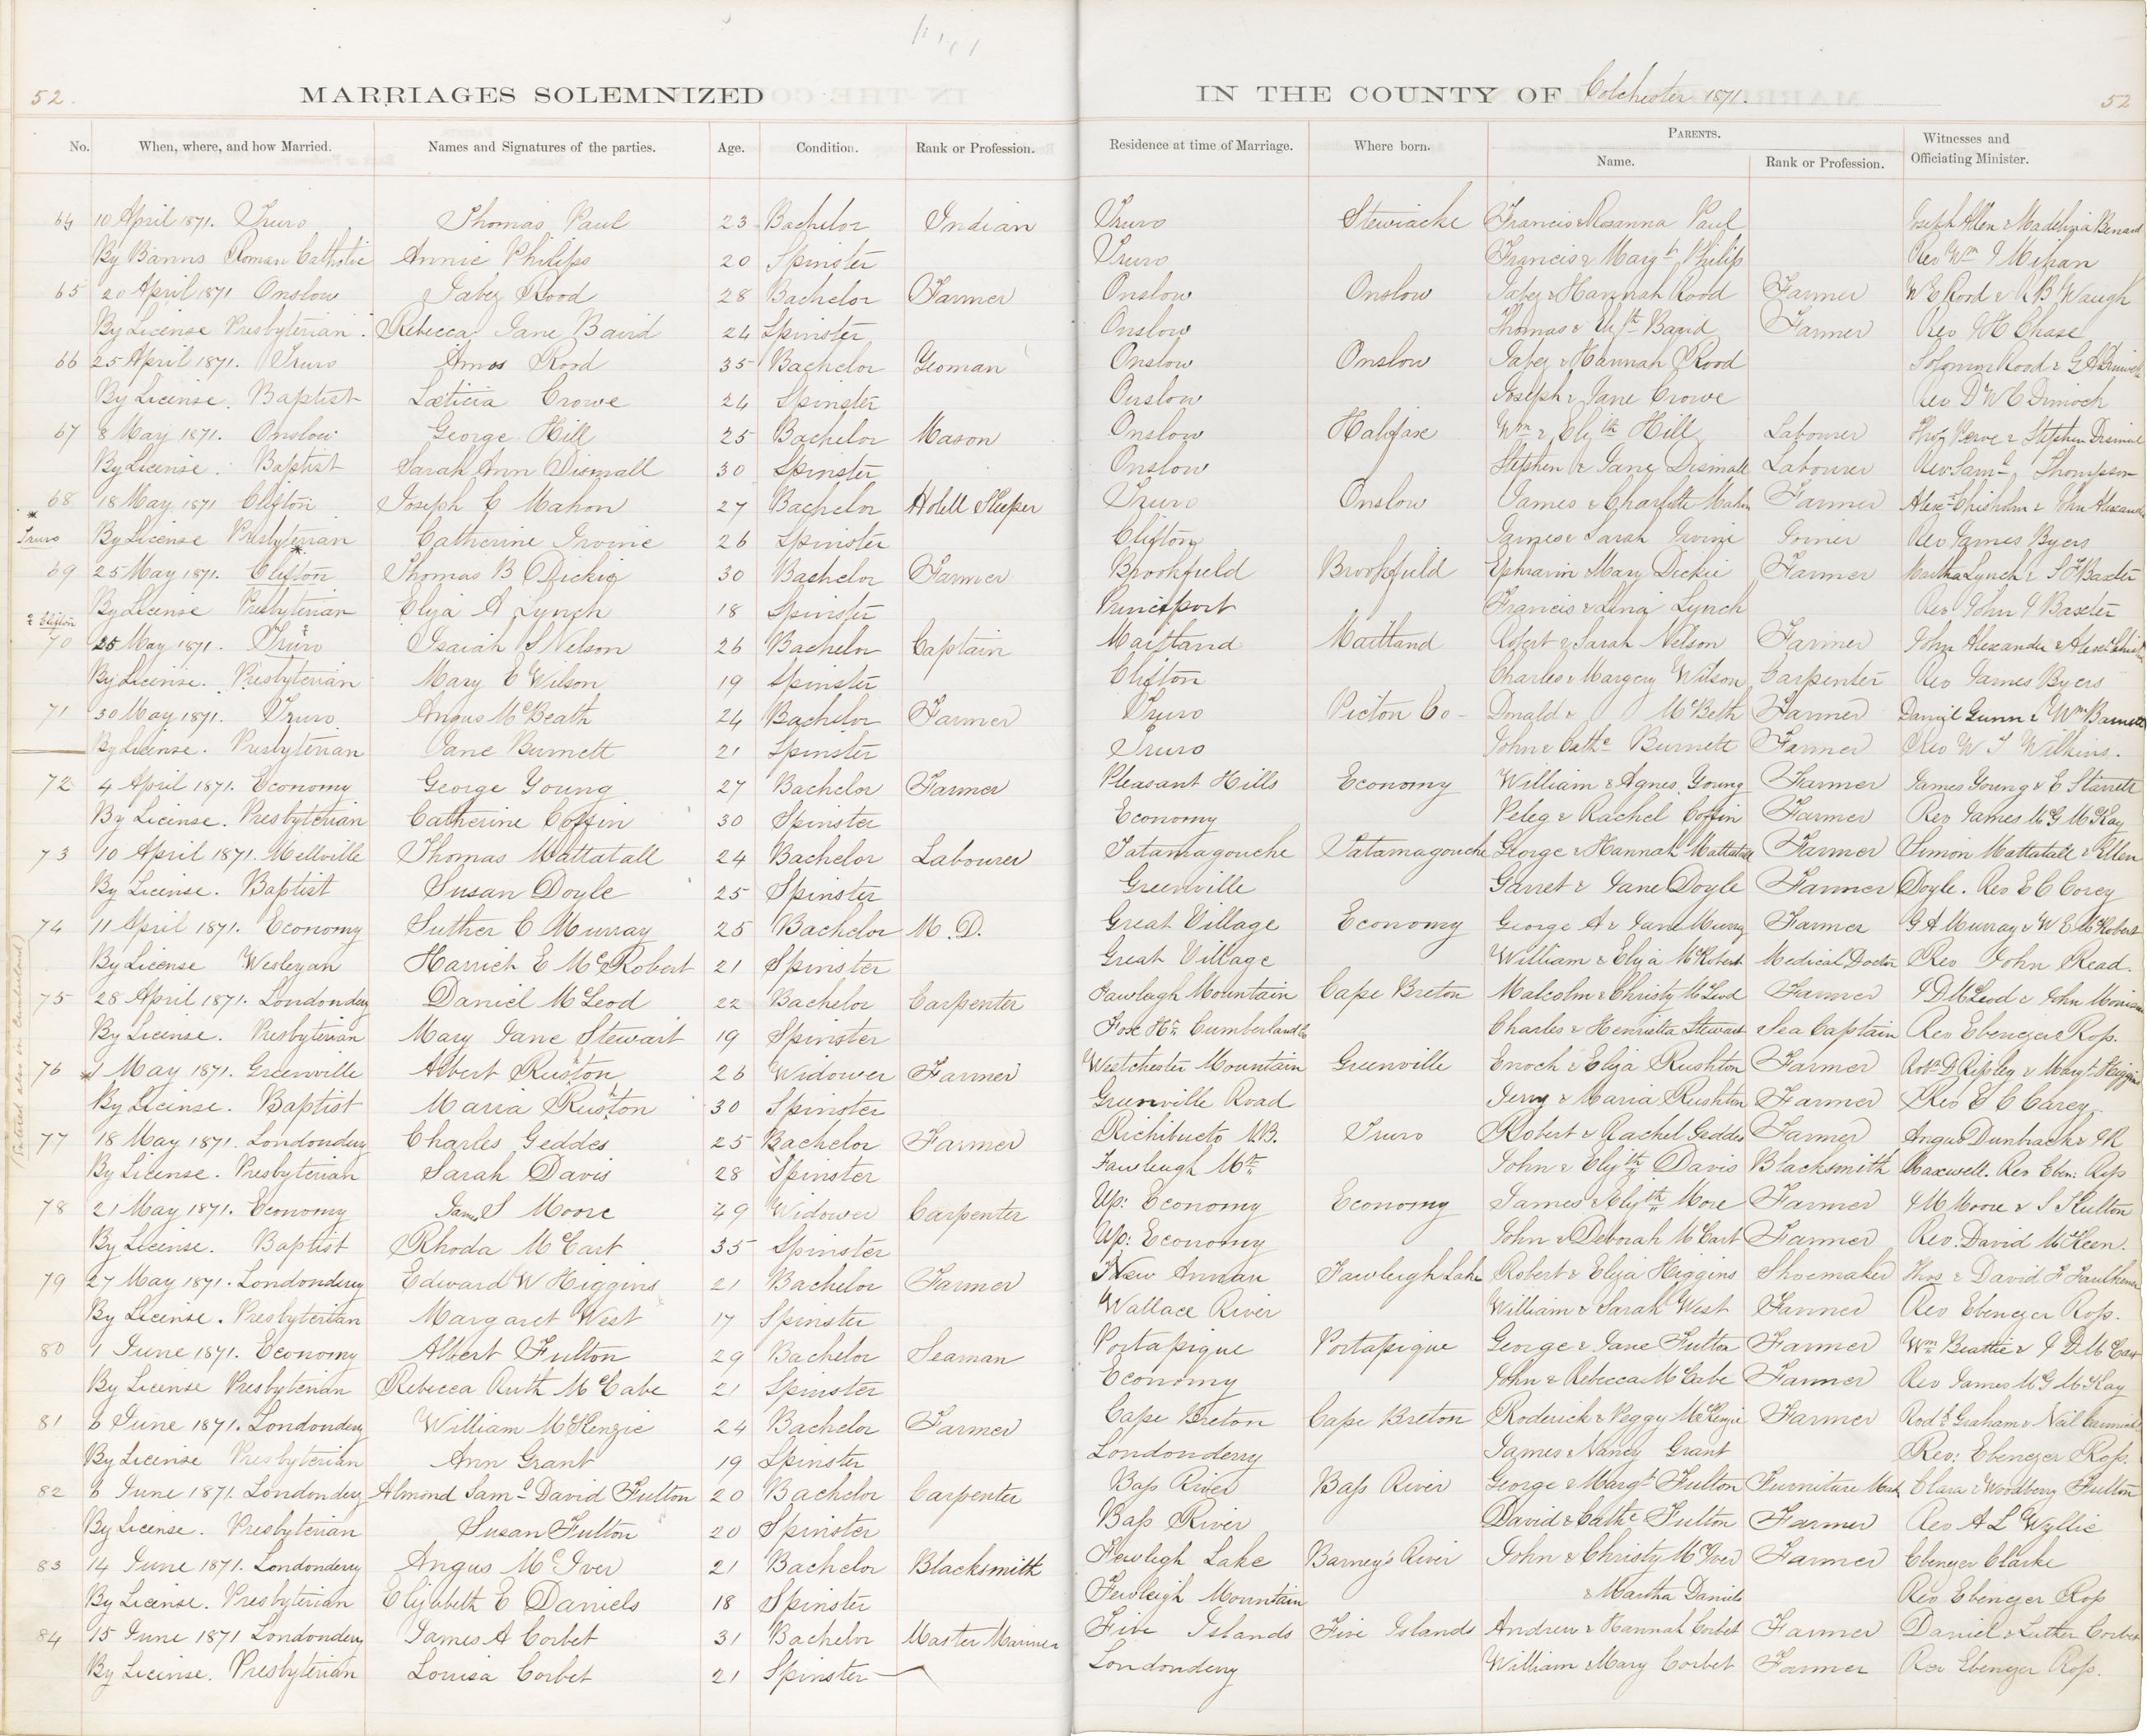 52.
MARRIAGES SOLEMNIZED
IN THE COUNTY OF Colchester 1871.
52
No. When, where, and how Married. Names and Signatures of the parties. Age. Condition. Rank or Profession. Residence at time of Marriage. Where born. PARENTS. Name. Rank or Profession. Witnesses and Officiating Minister.
64 10 April 1871. Truro Thomas Paul 23 Bachelor Indian Truro Stewiacke Francis & Rosanna Paul Joseph Allen & Benard
By Banns Roman Catholic Annie Philips 20 Spinster Truro Francis & Margt. Philip Rev Wm
65 20 April 1871 Onslow Jabez Rood 28 Bachelor Farmer Onslow Onslow Jabez & Hannah Rood Farmer W E Rood & R B Waugh
By License Presbyterian. Rebecca Jane Baird 24 Spinster Onslow Thomas & Baird Farmer Rev J H Chase
66 25 April 1871. Truro Amos Rood 35 Bachelor Yeoman Onslow Onslow Jabez & Hannah Rood Solomon Rood &
By License. Baptist Læticia Crowe 24 Spinster Onslow Joseph & Jane Crowe Rev D W C Dimock
67 8 May 1871. Onslow George Hill 25 Bachelor Mason Onslow Halifax Wm & Elizth Hill Labourer & Stephen Dismal
By License. Baptist Sarah Ann Dismall 30 Spinster Onslow Stephen & Jane Dismall Labourer Rev Saml. Thompson
68 18 May 1871 Clifton Joseph C Mahon 27 Bachelor Hotell Keeper Truro Onslow James & Charlotte Mahon Farmer Alexr Chisholm & John Alexander
* Truro By License Presbyterian Catherine Irvine 26 Spinster Clifton James & Sarah Irvine Joiner Rev James Byers
69 25 May 1871. Clifton * Thomas B Dickie 30 Bachelor Farmer Brookfield Brookfield Ephraim & Mary Dickie Farmer Martha Lynch & Baxter
By License Presbyterian Eliza A Lynch 18 Spinster Princeport Francis & Lynch Rev John I Baxter
& Clifton
70 25 May 1871. Truro Isaiah S Nelson 26 Bachelor Captain Maitland Maitland Robert & Sarah Nelson Farmer John Alexander &
By License. Presbyterian Mary E Wilson 19 Spinster Clifton Charles & Margery Wilson Carpenter Rev James Byers
71 30 May 1871. Truro Angus McBeath 24 Bachelor Farmer Truro Pictou Co- Donald & McBeth Farmer Daniel Gunn & Wm
By License. Presbyterian Jane Burnett 21 Spinster Truro John & Cathe Burnett Farmer Rev W T Wilkins.
72 4 April 1871. Economy George Young 27 Bachelor Farmer Pleasant Hills Economy William & Agnes Young Farmer James Young & E Starrett
By License. Presbyterian Catherine Coffin 30 Spinster Economy Peleg & Rachel Coffin Farmer Rev James McG McKay
73 10 April 1871. Mellville Thomas Mattatall 24 Bachelor Labourer Tatamagouche Tatamagouche George & Hannah Mattatall Farmer Simon Mattatall & Ellen
By License. Baptist Susan Doyle 25 Spinster Greenville Garret & Jane Doyle Farmer Doyle. Rev E C Corey
74 11 April 1871. Economy Luther C Murray 25 Bachelor M. D. Great Village Economy George A & Jane Murray Farmer G A Murray & W E McRobert
By License Wesleyan Harriet E McRobert 21 Spinster Great Village William & Eliza McRobert Medical Doctor Rev John Read.
(Entered also in Cumberland)
75 28 April 1871. Londonderry Daniel McLeod 22 Bachelor Carpenter Fawleigh Mountain Cape Breton Malcolm & Christy McLeod Farmer J D McLeod & John
By License. Presbyterian Mary Jane Stewart 19 Spinster Fox Hr. Cumberland Co Charles & Henrietta Stewart Sea Captain Rev Ebenezer Ross.
76 * 1 May 1871. Greenville Albert Rushton 26 Widower Farmer Westchester Mountain Greenville Enoch & Eliza Rushton Farmer Robt D Ripley & Margt Higgins
By License. Baptist Maria Rushton 30 Spinster Greenville Road Jerry & Maria Rushton Farmer Rev E C Carey
77 18 May 1871. Londonderry Charles Geddes 25 Bachelor Farmer Richibucto N.B. Truro Robert & Rachel Geddes Farmer Angus Dunbrack & J R
By License. Presbyterian Sarah Davis 28 Spinster Fawleigh Mtn John & Elizth Davis Blacksmith Maxwell. Rev Eben: Ross
78 21 May 1871. Economy James S Moore 49 Widower Carpenter Up: Economy Economy James & Elizth More Farmer J M Moore & S Fulton
By License. Baptist Rhoda McCart 35 Spinster Up: Economy John & Deborah McCart Farmer Rev. David McKeen.
79 27 May 1871. Londonderry Edward W Higgins 21 Bachelor Farmer New Annan Fawleigh Lake Robert & Eliza Higgins Shoemaker Thos & David F Faulkener
By License. Presbyterian Margaret West 17 Spinster Wallace River William & Sarah West Farmer Rev Ebenezer Ross.
80 1 June 1871. Economy Albert Fulton 29 Bachelor Seaman Portapique Portapique George & Jane Fulton Farmer Wm Beattie & J D McCabe
By License Presbyterian Rebecca Ruth McCabe 21 Spinster Economy John & Rebecca McCabe Farmer Rev James McG McKay
81 6 June 1871. Londonderry William McKenzie 24 Bachelor Farmer Cape Breton Cape Breton Roderick & Peggy McKenzie Farmer Rodk Graham & Neil
By License Presbyterian Ann Grant 19 Spinster Londonderry James & Nancy Grant Rev: Ebenezer Ross.
82 6 June 1871. Londonderry Almond Saml David Fulton 20 Bachelor Carpenter Bass River Bass River George & Margt Fulton Furniture Clara & Woodberry Fulton
By License. Presbyterian Susan Fulton 20 Spinster Bass River David & Cathe Fulton Farmer Rev A L Wyllie
83 14 June 1871. Londonderry Angus McIver 21 Bachelor Blacksmith Fewleigh Lake Barney's River John & Christy McIver Farmer Ebenezer Clarke
By License. Presbyterian Elizabeth E Daniels 18 Spinster Fewleigh Mountain & Martha Daniels Rev Ebenezer Ross
84 15 June 1871 Londonderry James A Corbet 31 Bachelor Master Mariner Five Islands Five Islands Andrew & Hannah Corbet Farmer Daniel & Luther Corbet
By License. Presbyterian Louisa Corbet 21 Spinster Londonderry William & Mary Corbet Farmer Rev Ebenezer Ross.